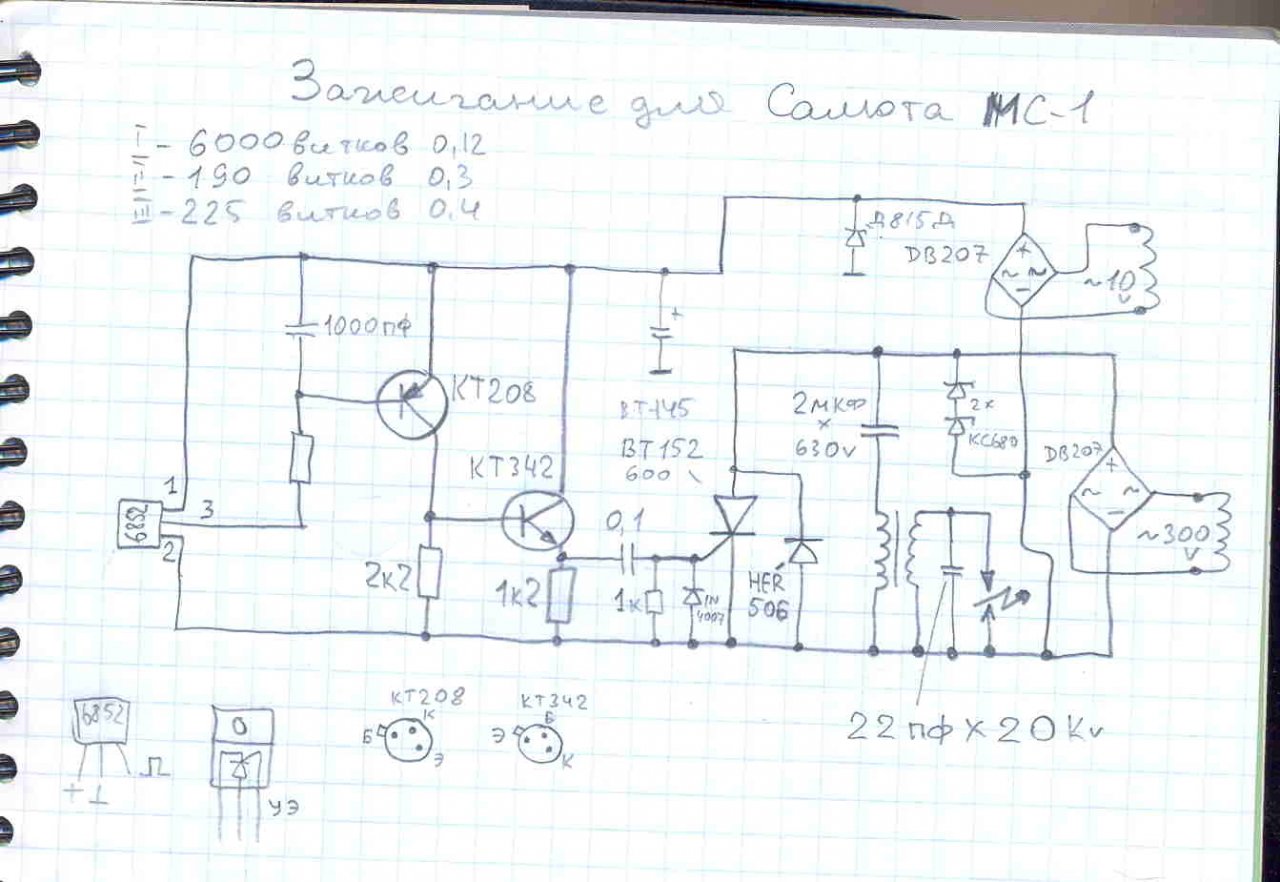 Зажигание для Салюта МС-1
I - 6000 витков 0,12
II - 190 витков 0,3
III - 225 витков 0.4
Д815Д
DB207
~ + ~ −
~10 v
1000пф
+
КТ208
ВТ145
ВТ152
600
2мкф
х
630v
2х
КС680
DB207
+
~ ~
−
~300
v
КТ342
1
3
6852
2
0,1
2к2
1к2
1к
1N
4007
HER
506
22 пф х 20 Kv
6852
+ ⊥
О
УЭ
КТ208
Б К Э
КТ342
Э Б К